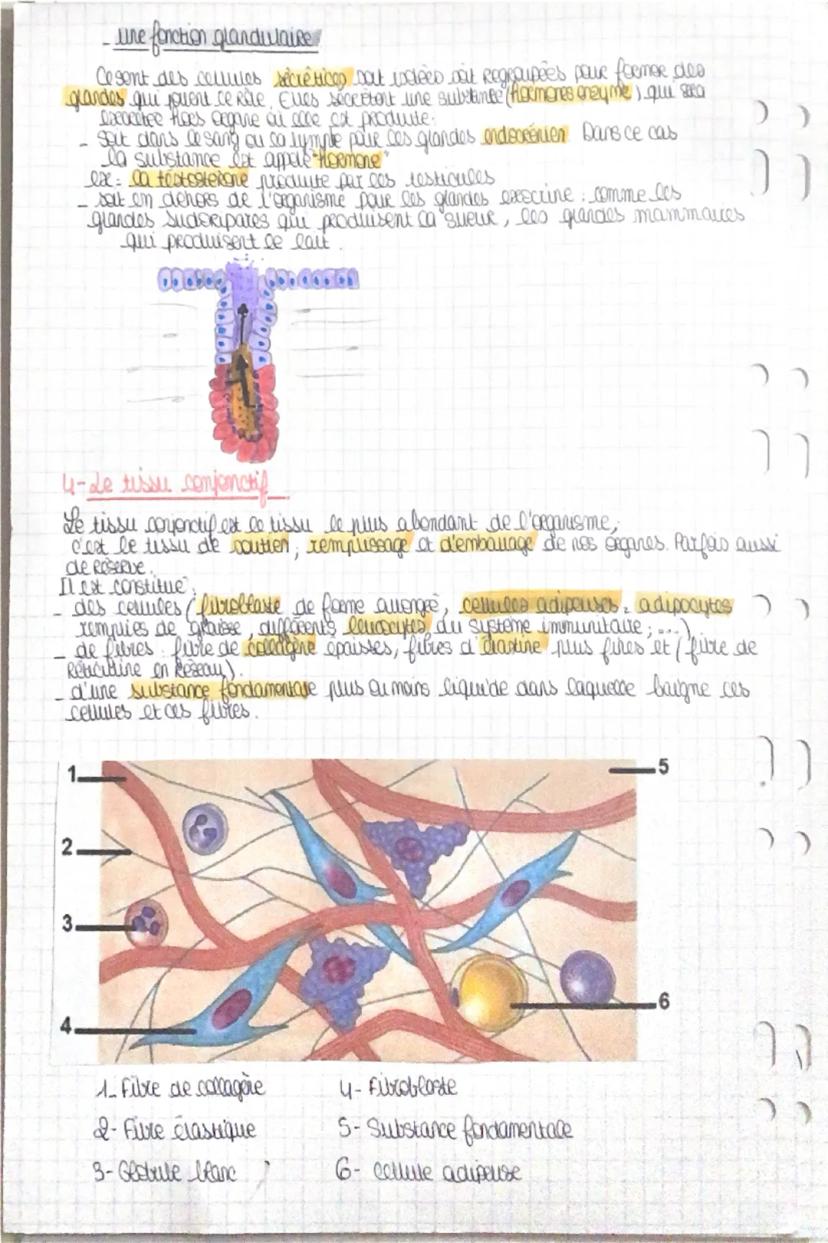 - une fonction glandulaire
Ce sont des cellules sécrétices soit isolées soit regroupées pour former des
glandes qui jouent ce rôle. Elles sécrétent une substance (hormones enzyme) qui sera
excrétée hors organe où elle est produite:
- soit dans le sang ou la lymphe pour les glandes endocrénien Dans ce cas
la substance est appelé "Hormone"
ex: la testostérone produite par les testicules
- soit en dehors de l'organisme pour les glandes exocrine : comme les
glandes sudoripares qui produisent la sueur, les glandes mammaires
qui produisent le lait.
4- Le tissu conjonctif
Le tissu conjonctif est le tissu le plus abondant de l'organisme,
c'est le tissu de soutien, remplissage et d'emballage de nos organes. Parfois aussi
de réserve.
Il est constitué:
- des cellules (fibroblaste de forme allongé, cellules adipeuses = adipocytes
remplies de graisse, différents leucocytes du système immunitaire ; ...)
- de fibres : fibre de collagène épaisses, fibres d'élastine plus fines et (fibre de
réticuline en réseau).
- d'une substance fondamentale plus ou moins liquide dans laquelle baigne ces
cellules et ces fibres.
1 5
2
3
6
4
1- Fibre de collagène 4- Fibroblaste
2- Fibre élastique 5- Substance fondamentale
3- Globule blanc 6- cellule adipeuse